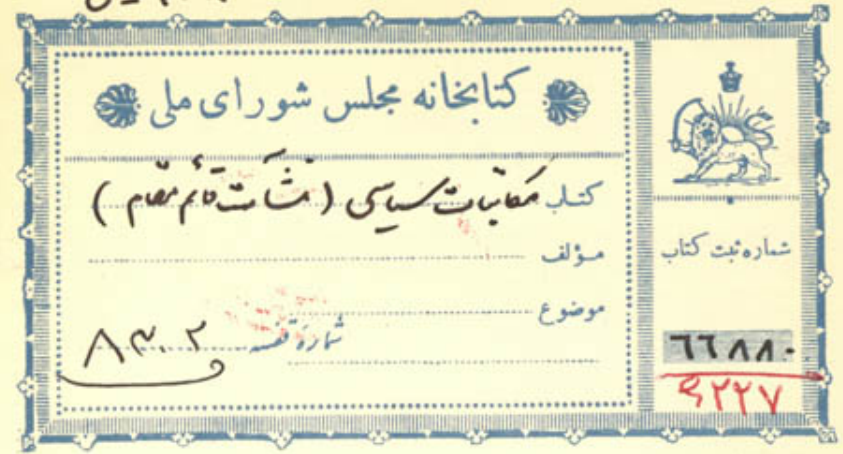 کتابخانه مجلس شورای ملی
کتاب مکاتبات سیاسی ( منشآت قائم مقام )
مؤلف
موضوع
شمارهٔ قفسه ۸۳۰۲
شماره ثبت کتاب
٦٦٨٨٠